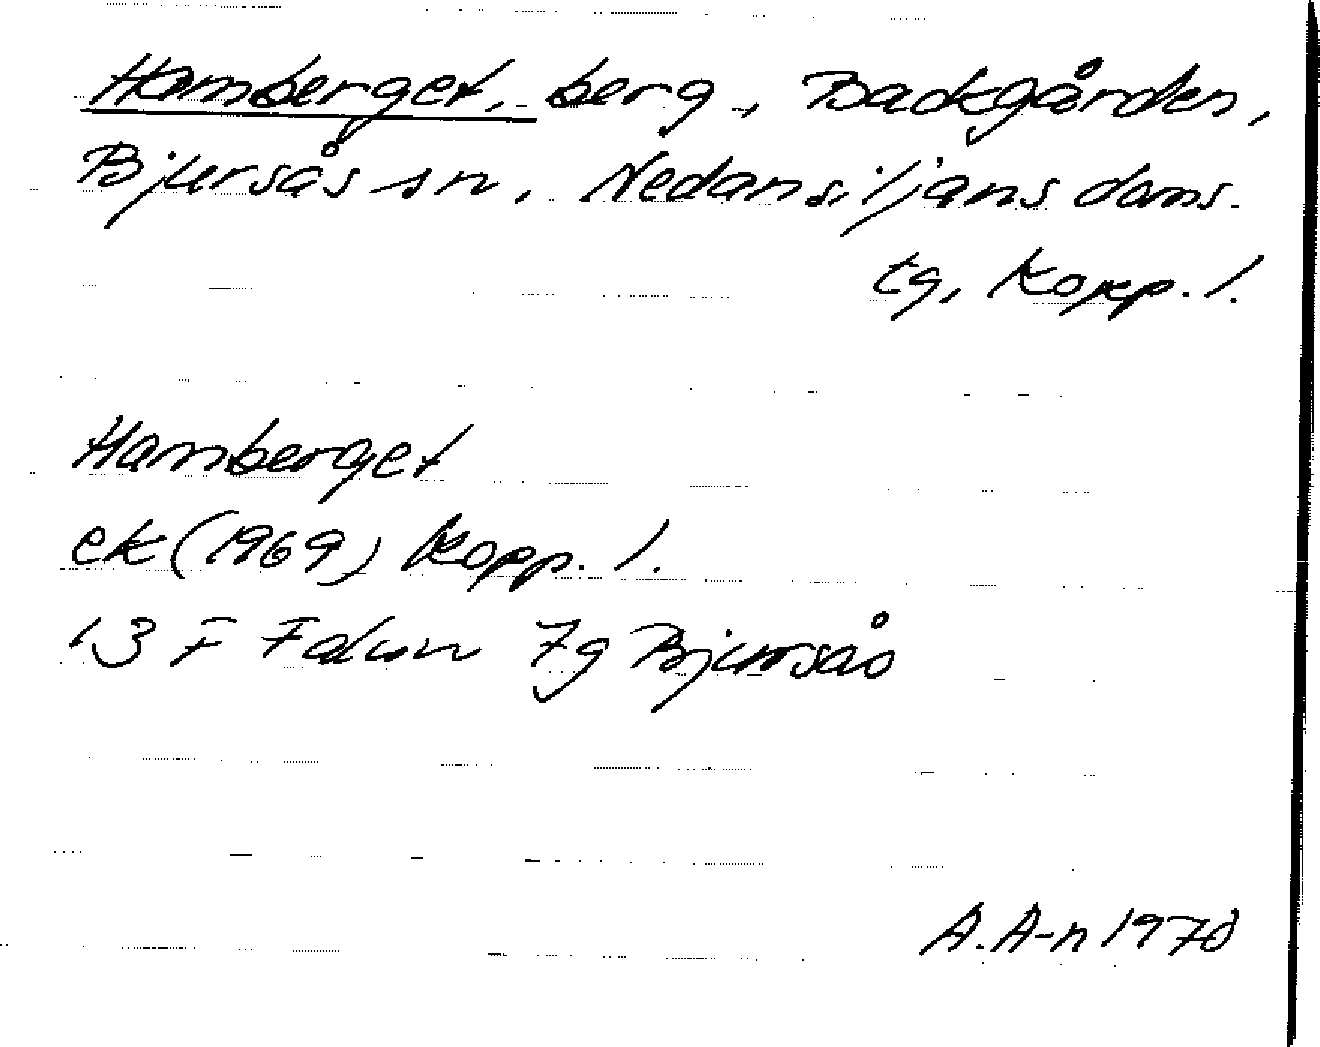 Hamberget, berg, Backgården,
Bjursås sn, Nedansiljans doms.
tg, Kopp. l.
Hamberget
ek (1969) Kopp. l.
13 F Falun 7g Bjursås
A. A-n 1970